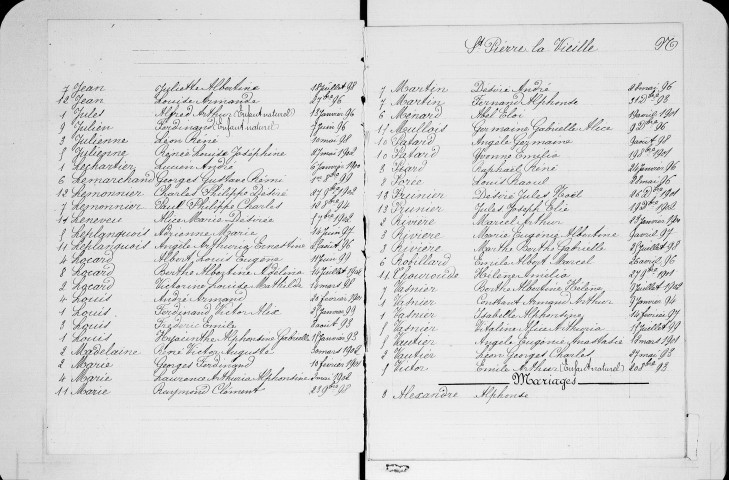 7 Jean Juliette Albertine 18 juillet 98
12 Jean Louise Armande 96
1 Jules Alfred Arthur (Enfant naturel) 18 janvier 96
9 Julien Ferdinand (Enfant naturel) 7 juin 96
3 Julienne Léon René 10 mai 98
8 Julienne Renée Louise Joséphine mai 1902
1 Lechartier Lucien janvier 1900
6 Lemarchand Georges Gustave Rémi 99
12 Lemonnier Charles Philippe Désiré 1902
7 Lemonnier Paul Philippe Charles 94
11 Leneveu Alice Marie Désirée 17 1902
8 Leplanquois Adrienne Marie 24 juin 97
11 Leplanquois Angèle Arthuria Ernestine août 96
4 Locard Albert Louis Eugène 11 juin 99
8 Locard Berthe Albertine Adelina juillet 1901
2 Locard Victorine Louise Mathilde 10 mars 98
4 Louis André Armand 20 février 1901
1 Louis Ferdinand Victor Alix janvier 99
3 Louis Frédéric Emile août 93
1 Louis Hyacinthe Alphonsine Gabrielle janvier 93
2 Madelaine René Victor Auguste 30 mars 1902
2 Marie Georges Ferdinand 10 février 1901
4 Marie Laurence Arthuria Alphonsine mai 1902
11 Marie Raymond Clément 98
St Pierre la Vieille
7 Martin Désiré André mai 96
7 Martin Fernand Alphonse 31 98
6 Menard Abel Eloi avril 1901
17 Germaine Gabrielle Alice 9 96
10 Patard Angèle Germaine 9 août 98
10 Patard Yvonne Emilia 19 1901
3 Raphaël René 24 janvier 96
8 Louis Raoul mai 96
13 Prunier Désiré Jules Noël 1901
13 Prunier Jules Joseph Elie 1902
2 Rivière Marcel Arthur janvier 1900
7 Rivière Marie Eugénie Albertine 9 avril 97
3 Rivière Marthe Berthe Gabrielle juillet 98
6 Robillard Emile Albert Marcel 25 avril 96
11 Hélène Amélia 27 1901
7 Vasnier Berthe Albertine Hélène 9 juillet 1902
1 Vasnier Constant Armand Arthur 9 janvier 94
1 Vasnier Isabelle Alphonsine 14 février 97
8 Vasnier Vitaline Alice Arthuria juillet 99
8 Vautier Angèle Eugénie Anastasie mars 1901
2 Vautier Léon Georges Charles 27 mai 93
1 Victor Emile Arthur (Enfant naturel) 20 93
Mariages
8 Alexandre Alphonse